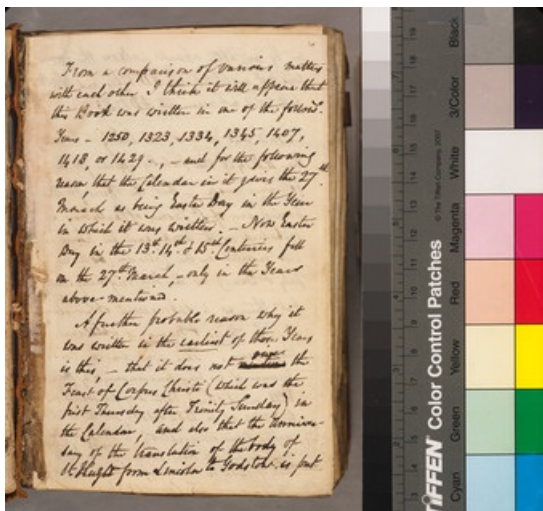 From a comparison of various matters
with each other I think it will appear that
this Book was written in one of the followg.
Years – 1250, 1323, 1334, 1345, 1407,
1418, or 1429 –, – and for the following
reason, that the Calendar in it gives the 27th
March as being Easter Day in the Year
in which it was written. – Now Easter
Day in the 13th. 14th & 15th. Centuries fell
on the 27th March, – only in the Years
above-mentioned.
A further probable reason why it
was written in the earliest of those Years
is this, – that it does not give the
Feast of Corpus Christi (which was the
first Thursday after Trinity Sunday) in
the Calendar, and also that the Anniver-
sary of the translation of the body of
St Hugh from Lincoln to Godstow is put
Black
3/Color
White
Magenta
Red
Yellow
Green
Cyan
© The Tiffen Company, 2007
TIFFEN Color Control Patches